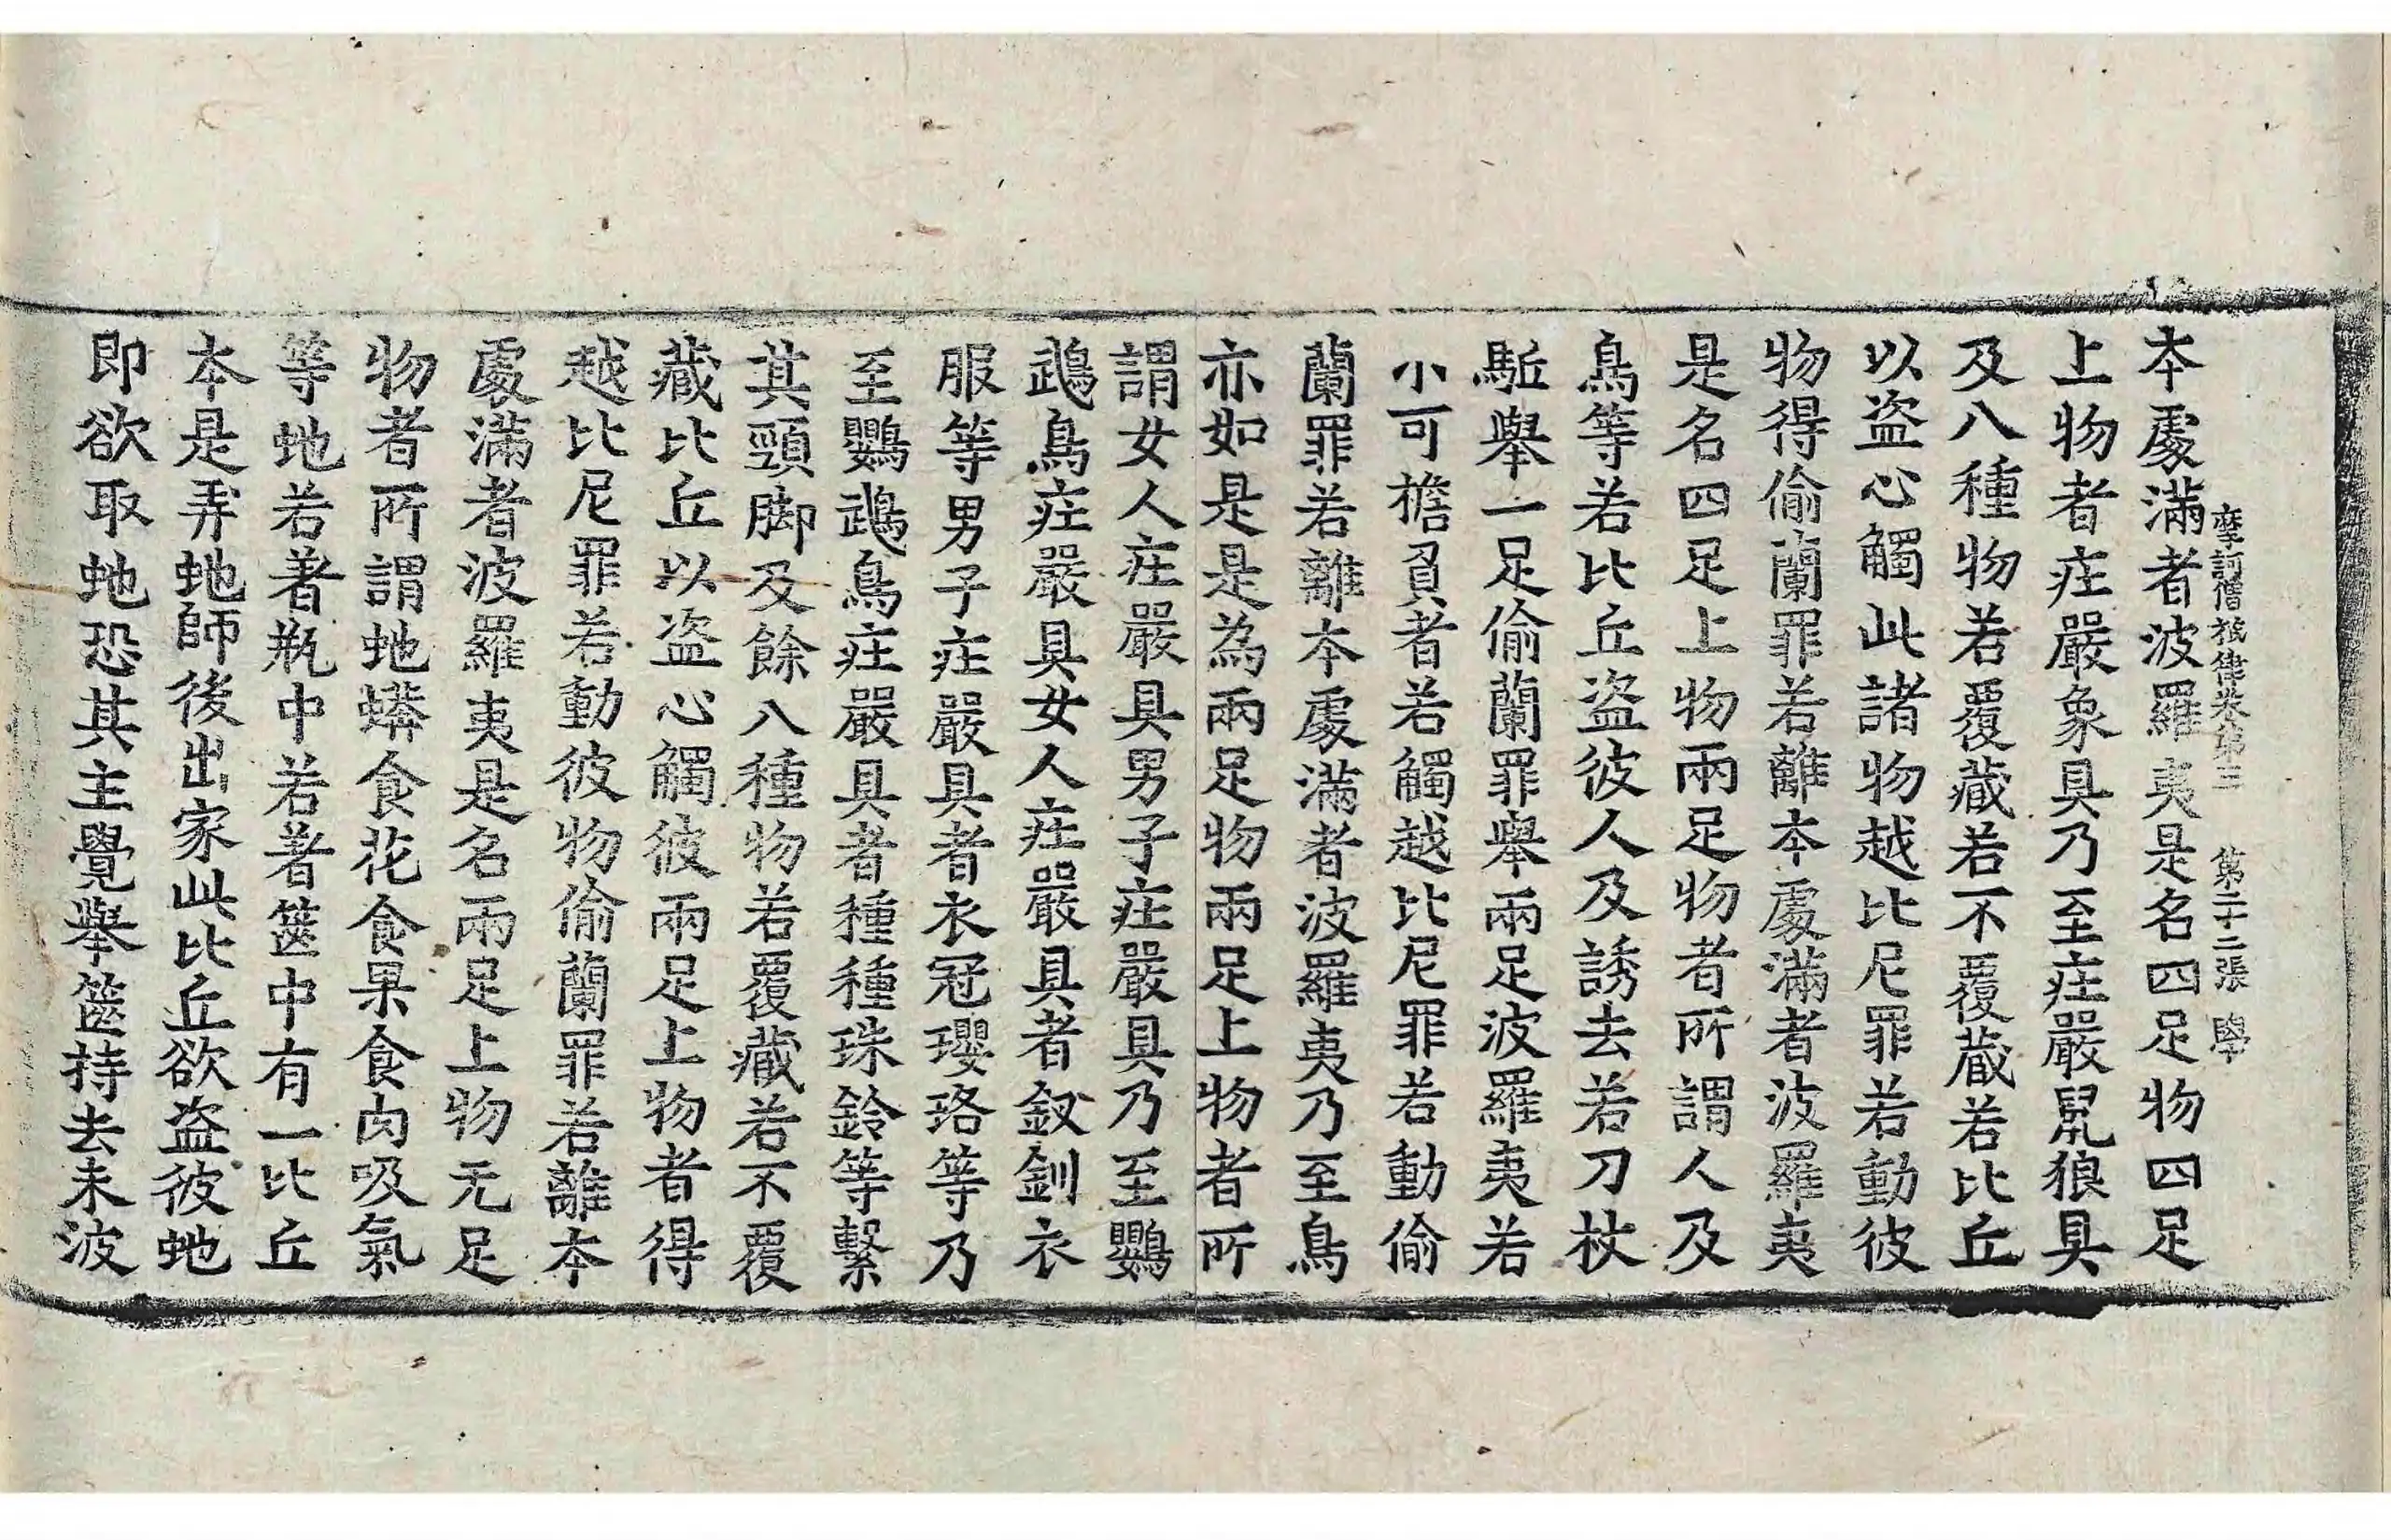 摩訶僧祇律卷第三 第二十二張 學
本處滿者波羅夷是名四足物四足
上物者庄嚴象具乃至庄嚴鼠狼具
及八種物若覆藏若不覆藏若比丘
以盜心觸此諸物越比尼罪若動彼
物得偷蘭罪若離本處滿者波羅夷
是名四足上物兩足物者所謂人及
鳥等若比丘盜彼人及誘去若刀杖
駈舉一足偷蘭罪舉兩足波羅夷若
小可擔負者若觸越比尼罪若動偷
蘭罪若離本處滿者波羅夷乃至鳥
亦如是是為兩足物兩足上物者所
謂女人庄嚴具男子庄嚴具乃至鸚
鵡鳥庄嚴具女人庄嚴具者釵釧衣
服等男子庄嚴具者衣冠瓔珞等乃
至鸚鵡鳥庄嚴具者種種珠鈴等繫
其頸脚及餘八種物若覆藏若不覆
藏比丘以盜心觸彼兩足上物者得
越比尼罪若動彼物偷蘭罪若離本
處滿者波羅夷是名兩足上物无足
物者所謂虵蟒食花食果食肉吸氣
等虵若著瓶中若著篋中有一比丘
本是弄虵師後出家此比丘欲盜彼虵
即欲取虵恐其主覺舉篋持去未波